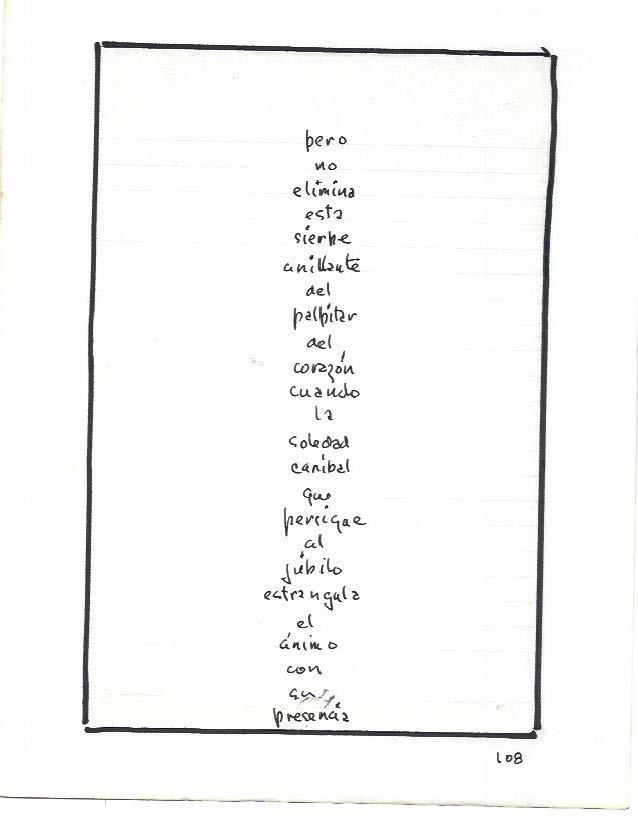 pero
no
elimina
esta
sierpe
anillante
del
palpitar
del
corazón
cuando
la
soledad
canibal
que
persigue
al
júbilo
estrangula
el
ánimo
con
presencia
108